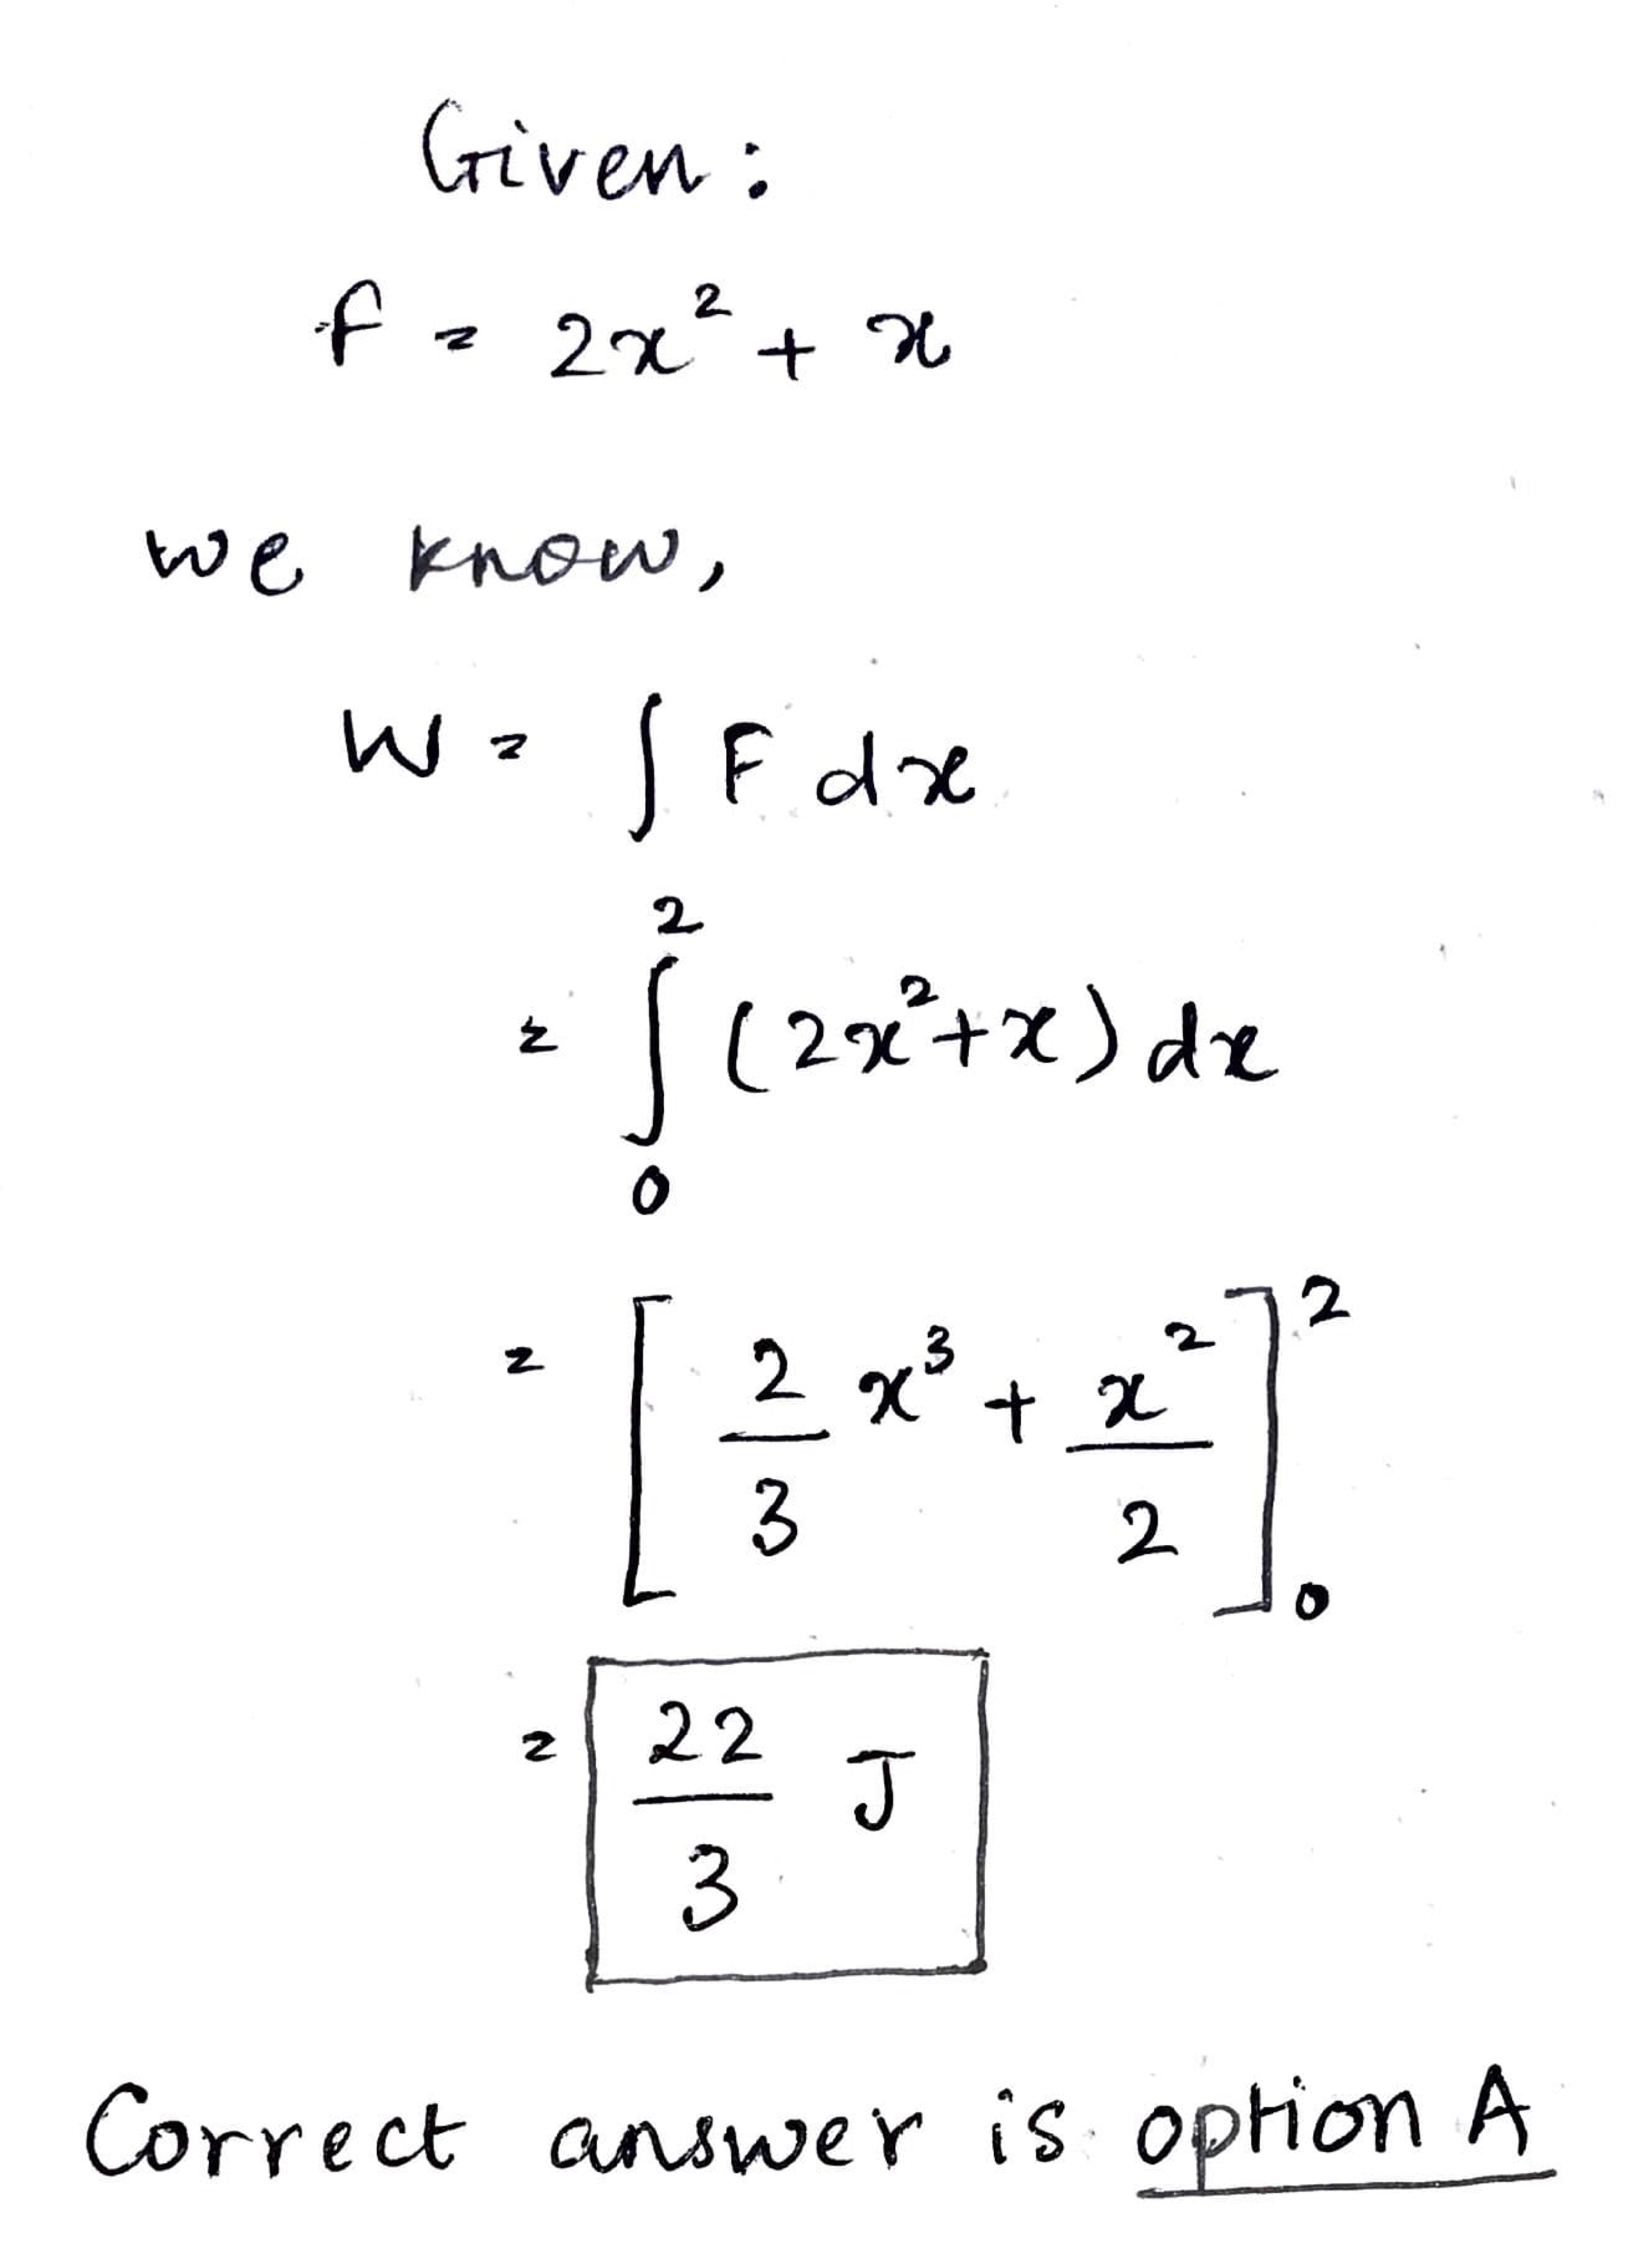 Given:
F = 2x² + x
we know,
W = ∫ F dx
= ∫₀² (2x²+x) dx
= [ 2/3 x³ + x²/2 ]₀²
= 22/3 J
Correct answer is option A